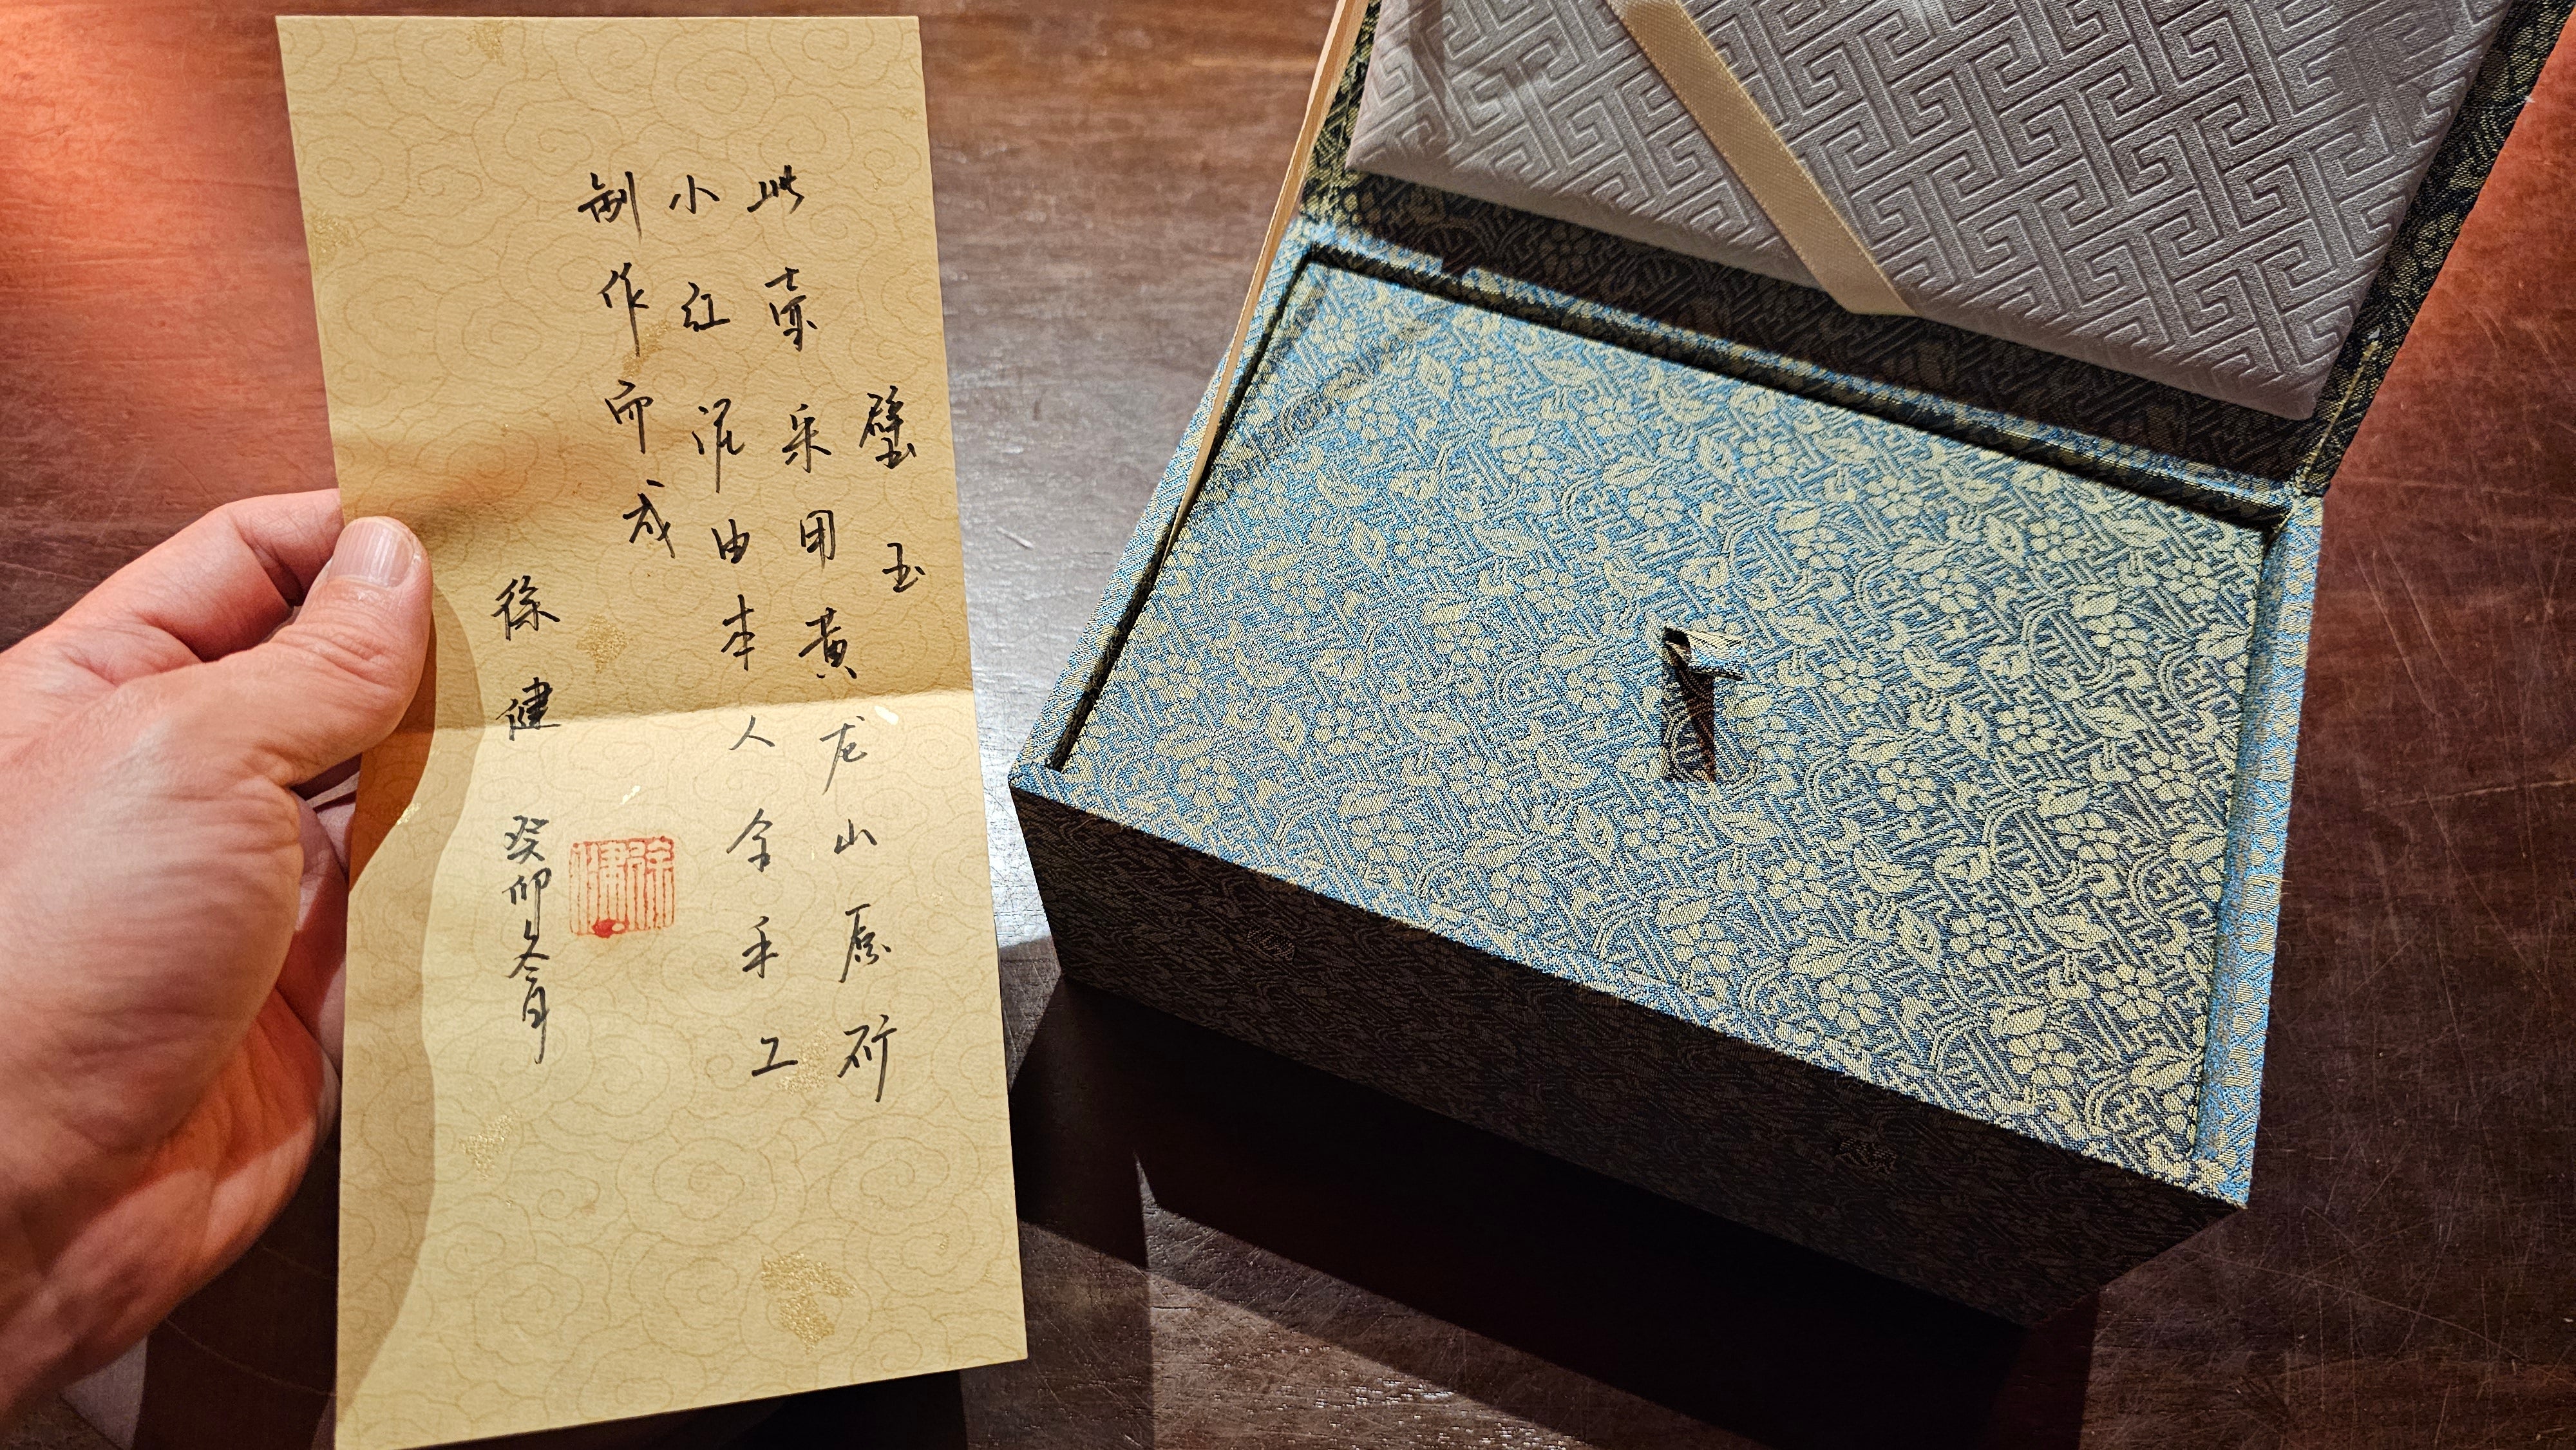 璧玉
此壶采用黄龙山原矿
小红泥由本人全手工
制作而成
徐健
癸卯年
徐健